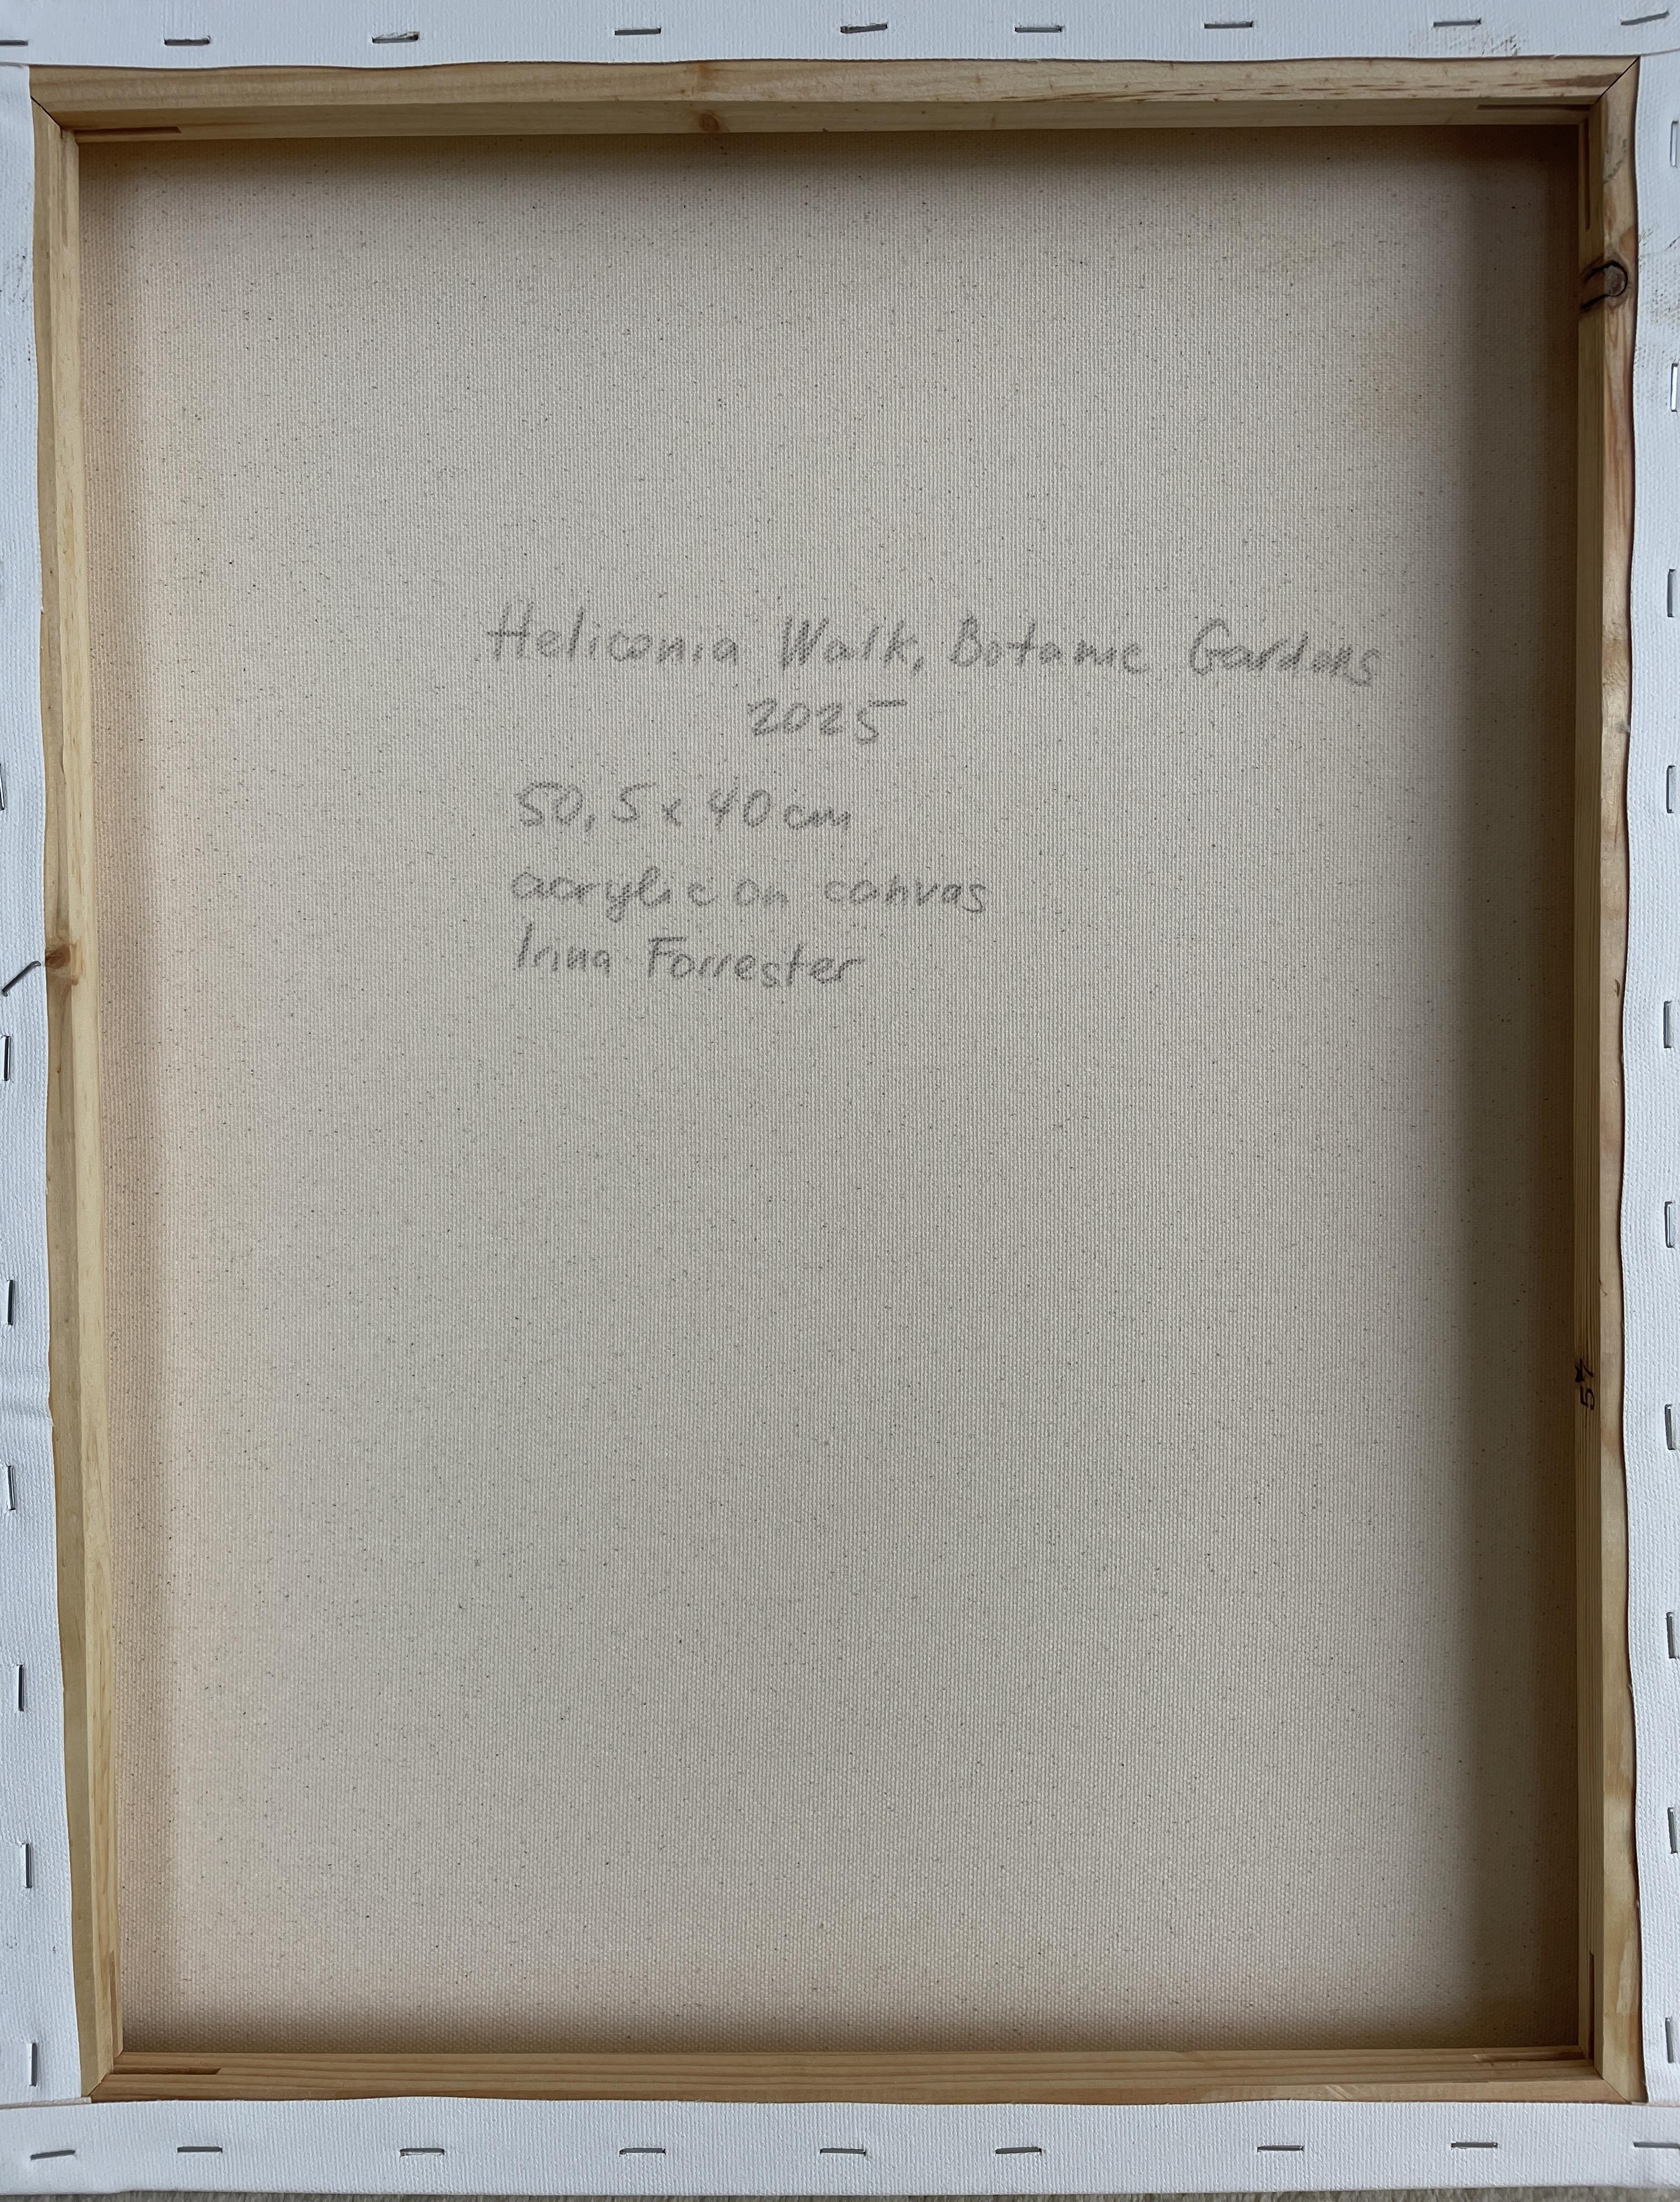 Heliconia Walk, Botanic Gardens
2025
50,5x40cm
acrylic on canvas
Irina Forrester
57